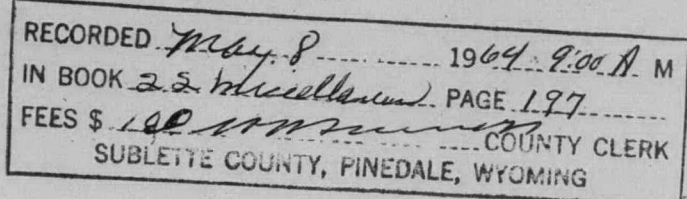 RECORDED May 8 1964 9:00 A M
IN BOOK 22 Miscellaneous PAGE 197
FEES $ COUNTY CLERK
SUBLETTE COUNTY, PINEDALE, WYOMING